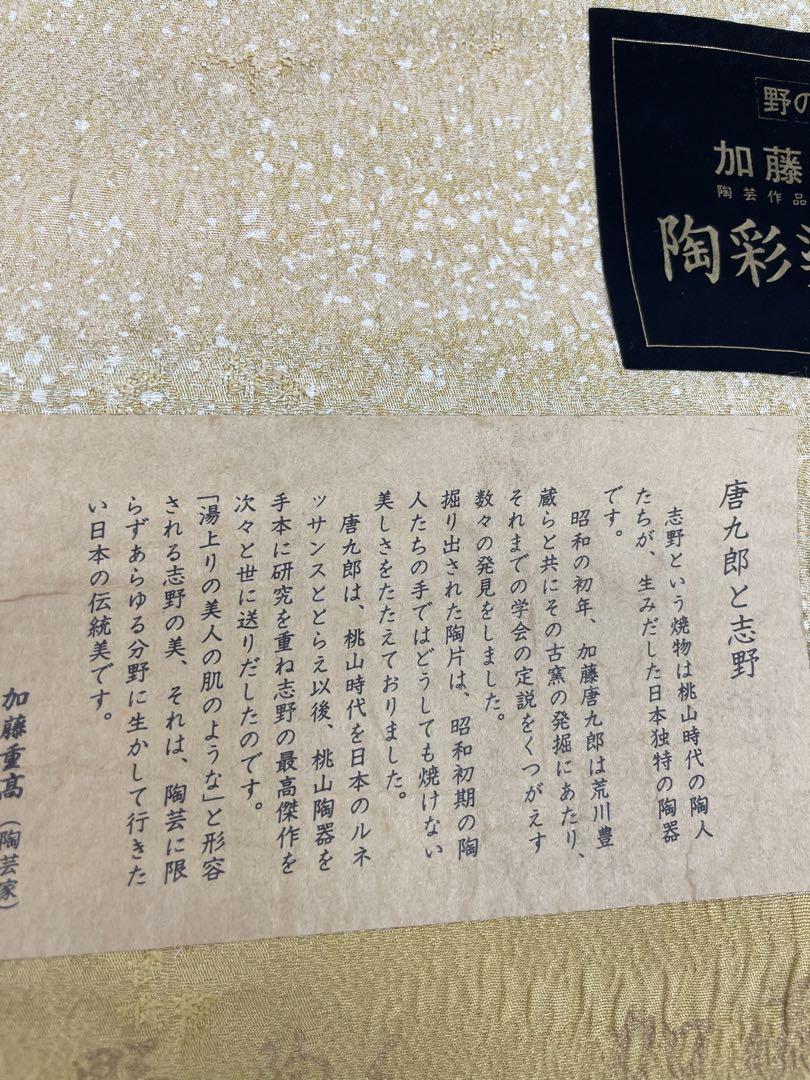 野の
加藤
陶芸作品
陶彩
唐九郎と志野
志野という焼物は桃山時代の陶人
たちが、生みだした日本独特の陶器
です。
昭和の初年、加藤唐九郎は荒川豊
蔵らと共にその古窯の発掘にあたり、
それまでの学会の定説をくつがえす
数々の発見をしました。
掘り出された陶片は、昭和初期の陶
人たちの手ではどうしても焼けない
美しさをたたえておりました。
唐九郎は、桃山時代を日本のルネ
ッサンスととらえ以後、桃山陶器を
手本に研究を重ね志野の最高傑作を
次々と世に送りだしたのです。
「湯上りの美人の肌のような」と形容
される志野の美、それは、陶芸に限
らずあらゆる分野に生かして行きた
い日本の伝統美です。
加藤重髙（陶芸家）